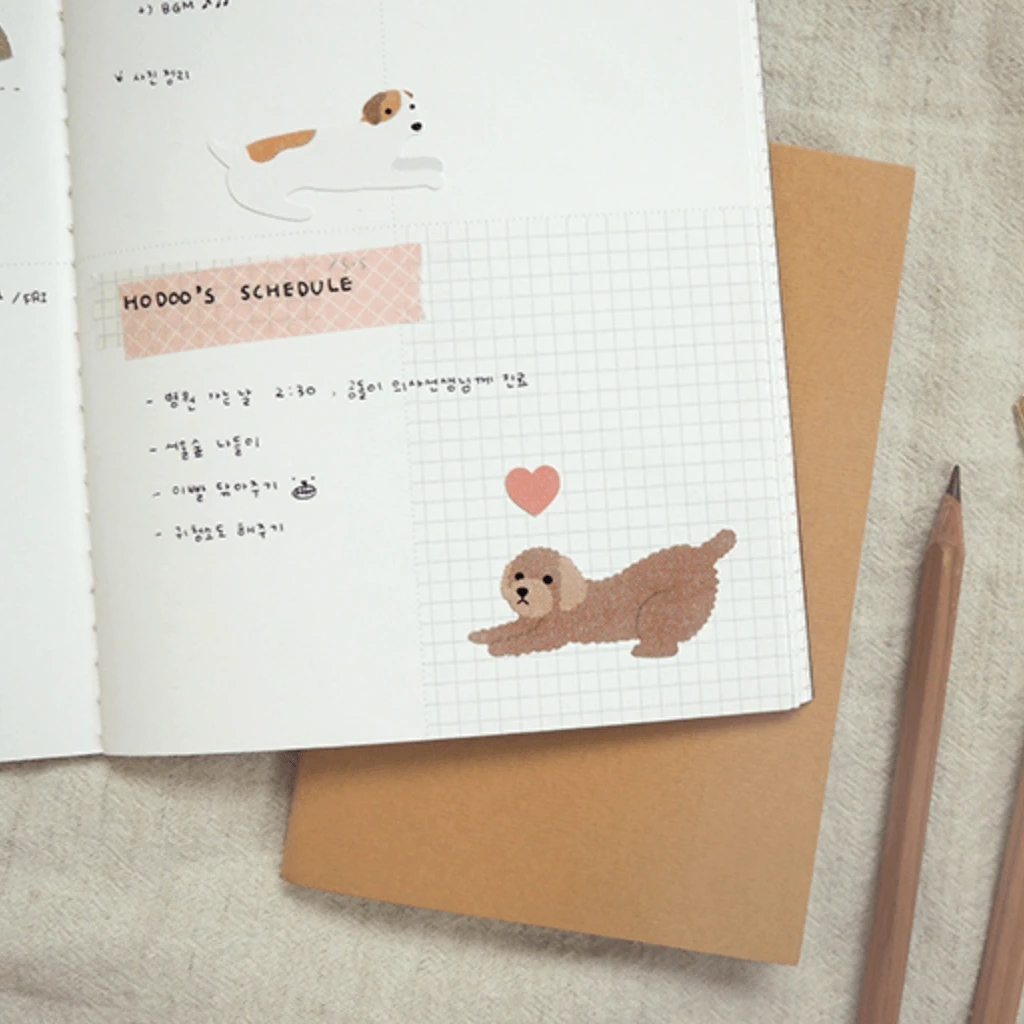 +) BGM ♪♫
∨ 사진 정리
/FRI
HODOO'S SCHEDULE
- 병원 가는 날 2:30 , 곰돌이 의사선생님께 진료
- 서울숲 나들이
- 이빨 닦아주기
- 귀청소도 해주기